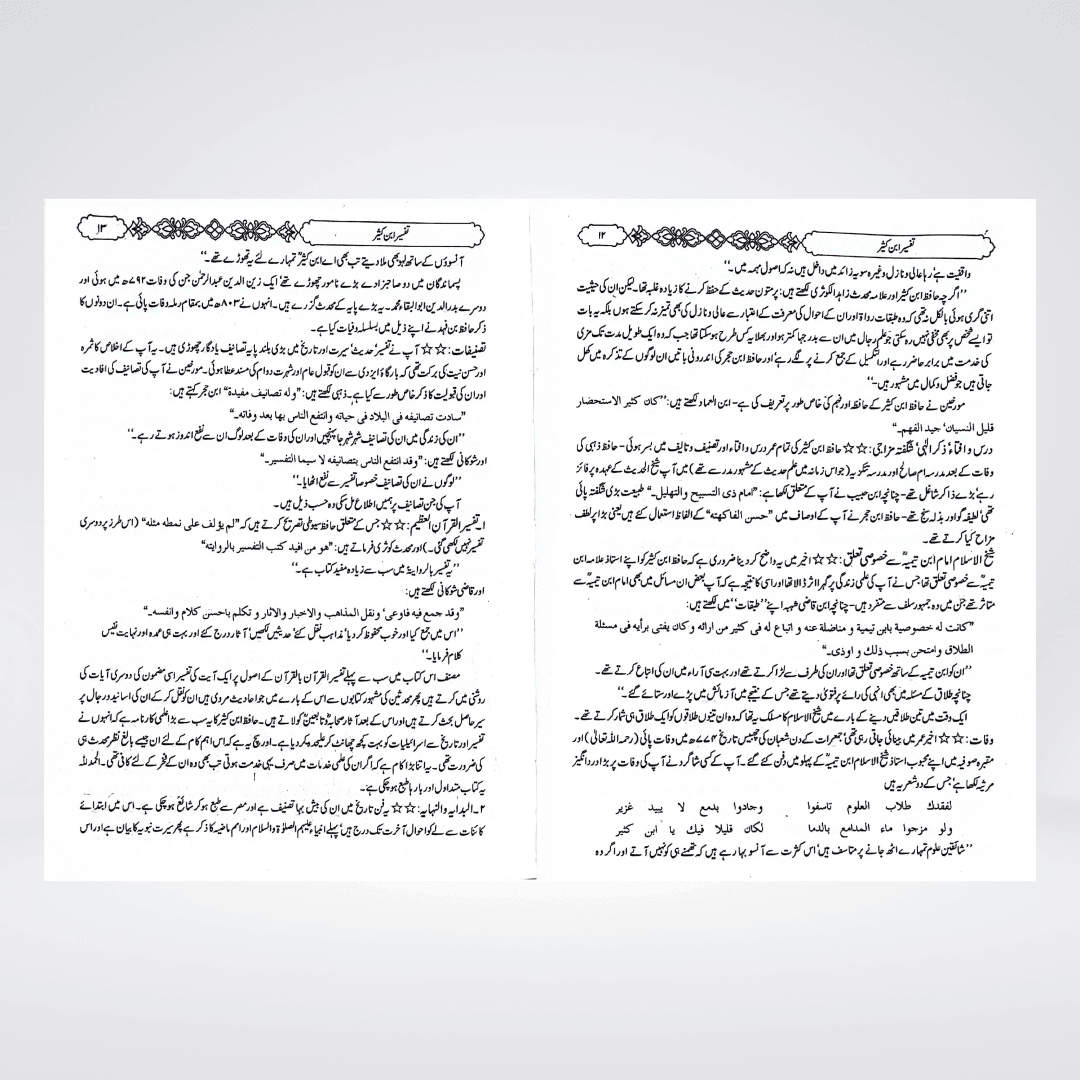 تفسیر ابن کثیر
۱۲
واقفیت ہے رہا عالی و نازل وغیرہ سو یہ زائد میں داخل ہیں نہ کہ اصول مہمہ میں۔‘‘
’’اگرچہ حافظ ابن کثیر اور علامہ محدث زاہد الکوثری لکھتے ہیں: پر متون حدیث کے حفظ کرنے کا زیادہ غلبہ تھا۔ لیکن ان کی حیثیت
اتنی گری ہوئی بالکل نہ تھی کہ وہ طبقات رواۃ اور ان کے احوال کی معرفت کے اعتبار سے عالی و نازل کی بھی تمیز نہ کر سکتے ہوں بلکہ یہ بات
تو ایسے شخص پر بھی مخفی نہیں رہ سکتی جو علم رجال میں ان سے بدرجہا کمتر ہو اور بھلا یہ کس طرح ہو سکتا تھا جب کہ وہ ایک طویل مدت تک مزی
کی خدمت میں برابر حاضر رہے اور التکمیل کے جمع کرنے پر لگے رہے اور حافظ ابن حجر کی اندرونی باتیں ان لوگوں کے تذکرہ میں کھل
جاتی ہیں جو فضل و کمال میں مشہور ہیں۔‘‘
مورخین نے حافظ ابن کثیر کے حافظہ اور فہم کی خاص طور پر تعریف کی ہے۔ ابن العماد لکھتے ہیں: ’’کان کثیر الاستحضار
قلیل النسیان‘ جید الفھم۔‘‘
درس و افتاء‘ ذکر الٰہی‘ شگفتہ مزاجی: ☆☆ حافظ ابن کثیر کی تمام عمر درس و افتاء اور تصنیف و تالیف میں بسر ہوئی۔ حافظ ذہبی کی
وفات کے بعد مدرسہ ام صالح اور مدرسہ تنکزیہ (جو اس زمانہ میں علم حدیث کے مشہور مدرسے تھے) میں آپ شیخ الحدیث کے عہدہ پر فائز
رہے‘ بڑے ذاکر شاغل تھے۔ چنانچہ ابن حبیب نے آپ کے متعلق لکھا ہے: ’’امام ذی التسبیح والتھلیل۔‘‘ طبیعت بڑی شگفتہ پائی
تھی‘ لطیفہ گو اور بذلہ سنج تھے۔ حافظ ابن حجر نے آپ کے اوصاف میں ’’حسن الفاکھتہ‘‘ کے الفاظ استعمال کئے ہیں یعنی بڑا پر لطف
مزاح کیا کرتے تھے۔
شیخ الاسلام امام ابن تیمیہؒ سے خصوصی تعلق: ☆☆ اخیر میں یہ واضح کر دینا ضروری ہے کہ حافظ ابن کثیر کو اپنے استاذ علامہ ابن
تیمیہؒ سے خصوصی تعلق تھا جس نے آپ کی علمی زندگی پر گہرا اثر ڈالا تھا اور اسی کا نتیجہ ہے کہ آپ بعض ان مسائل میں بھی امام ابن تیمیہؒ سے
متاثر تھے جن میں وہ جمہور سلف سے متفرد ہیں۔ چنانچہ ابن قاضی شہبہ اپنے ’’طبقات‘‘ میں لکھتے ہیں:
’’کانت لہ خصوصیة بابن تیمیة و مناضلة عنہ و اتباع لہ فی کثیر من ارائہ و کان یفتی برأیہ فی مسئلة
الطلاق وامتحن بسبب ذلك و اوذی۔‘‘
’’ان کو ابن تیمیہ کے ساتھ خصوصی تعلق تھا اور ان کی طرف سے لڑا کرتے تھے اور بہت سی آراء میں ان کی اتباع کرتے تھے۔
چنانچہ طلاق کے مسئلہ میں بھی انہی کی رائے پر فتویٰ دیتے تھے جس کے نتیجے میں آزمائش میں پڑے اور ستائے گئے۔‘‘
ایک وقت میں تین طلاقیں دینے کے بارے میں شیخ الاسلام کا مسلک یہ تھا کہ وہ ان تینوں طلاقوں کو ایک طلاق ہی شمار کرتے تھے۔
وفات: ☆☆ اخیر عمر میں بینائی جاتی رہی تھی‘ جمعرات کے دن شعبان کی چھبیس تاریخ ۷۷۴ھ میں وفات پائی (رحمہ اللہ تعالیٰ) اور
مقبرہ صوفیہ میں اپنے محبوب استاذ شیخ الاسلام ابن تیمیہؒ کے پہلو میں دفن کئے گئے۔ آپ کے کسی شاگرد نے آپ کی وفات پر بڑا درد انگیز
مرثیہ لکھا ہے‘ جس کے دو شعر یہ ہیں
لفقدك طلاب العلوم تاسفوا وجادوا بدمع لا یبید غزیر
ولو مزجوا ماء المدامع بالدما لکان قلیلا فیك یا ابن کثیر
’’شائقین علوم تمہارے اٹھ جانے پر متاسف ہیں‘ اس کثرت سے آنسو بہا رہے ہیں کہ تھمنے ہی کو نہیں آتے اور اگر وہ
تفسیر ابن کثیر
۱۳
آنسوؤں کے ساتھ لہو بھی ملا دیتے تب بھی اے ابن کثیرؒ تمہارے لئے یہ تھوڑے تھے۔‘‘
پسماندگان میں دو صاحبزادے بڑے نامور چھوڑے تھے‘ ایک زین الدین عبدالرحمٰن جن کی وفات ۷۹۲ھ میں ہوئی اور
دوسرے بدرالدین ابوالبقاء محمد۔ یہ بڑے پایہ کے محدث گزرے ہیں۔ انہوں نے ۸۰۳ھ میں بمقام رملہ وفات پائی ہے۔ ان دونوں کا
ذکر حافظ بن فہد نے اپنے ذیل میں بسلسلہ وفیات کیا ہے۔
تصنیفات: ☆☆ آپ نے تفسیر‘ حدیث‘ سیرت اور تاریخ میں بڑی بلند پایہ تصانیف یادگار چھوڑی ہیں۔ یہ آپ کے اخلاص کا ثمرہ
اور حسن نیت کی برکت تھی کہ بارگاہ ایزدی سے ان کو قبول عام اور شہرت دوام کی مسند عطا ہوئی۔ مورخین نے آپ کی تصانیف کی افادیت
اور ان کی قبولیت کا ذکر خاص طور سے کیا ہے۔ ذہبی لکھتے ہیں: ’’و لہ تصانیف مفیدة‘‘ ابن حجر کہتے ہیں:
’’سادت تصانیفہ فی البلاد فی حیاتہ وانتفع الناس بھا بعد وفاتہ۔‘‘
’’ان کی زندگی میں ان کی تصانیف شہر شہر جا پہنچیں اور ان کی وفات کے بعد لوگ ان سے نفع اندوز ہوتے رہے۔‘‘
اور شوکانی لکھتے ہیں: ’’وقد انتفع الناس بتصانیفہ لا سیما التفسیر۔‘‘
’’لوگوں نے ان کی تصانیف خصوصاً تفسیر سے نفع اٹھایا۔‘‘
آپ کی جن تصانیف پر ہمیں اطلاع مل سکی وہ حسب ذیل ہیں۔
۱۔ تفسیر القرآن العظیم: ☆☆ جس کے متعلق حافظ سیوطی تصریح کرتے ہیں کہ ’’لم یؤلف علی نمطہ مثلہ‘‘ (اس طرز پر دوسری
تفسیر نہیں لکھی گئی۔) اور محدث کوثری فرماتے ہیں: ’’ھو من افید کتب التفسیر بالروایتہ‘‘
’’یہ تفسیر بالروایۃ میں سب سے زیادہ مفید کتاب ہے۔‘‘
اور قاضی شوکانی لکھتے ہیں:
’’وقد جمع فیہ فاوعی‘ ونقل المذاھب والاخبار والاثار و تکلم باحسن کلام وانفسہ۔‘‘
’’اس میں جمع کیا اور خوب محفوظ کر دیا‘ مذاہب نقل کئے‘ حدیثیں لکھیں‘ آثار درج کئے اور بہت ہی عمدہ اور نہایت نفیس
کلام فرمایا۔‘‘
مصنف اس کتاب میں سب سے پہلے تفسیر القرآن بالقرآن کے اصول پر ایک آیت کی تفسیر اسی مضمون کی دوسری آیات کی
روشنی میں کرتے ہیں پھر محدثین کی مشہور کتابوں سے اس کے بارے میں جو احادیث مروی ہیں ان کو نقل کر کے ان کی اسانید و رجال پر
سیر حاصل بحث کرتے ہیں اور اس کے بعد آثار صحابہؓ و تابعینؒ کو لاتے ہیں۔ حافظ ابن کثیر کا یہ سب سے بڑا علمی کارنامہ ہے کہ انہوں نے
تفسیر اور تاریخ سے اسرائیلیات کو بہت کچھ چھانٹ کر علیحدہ کر دیا ہے۔ اور سچ یہ ہے کہ اس اہم کام کے لئے ان جیسے بالغ نظر محدث ہی
کی ضرورت تھی۔ یہ اتنا بڑا کام ہے کہ اگر ان کی علمی خدمات میں صرف یہی خدمت ہوتی تب بھی وہ ان کے فخر کے لئے کافی تھی۔ الحمد للہ
یہ کتاب متداول اور بارہا طبع ہو چکی ہے۔
۲۔ البدایہ والنہایہ: ☆☆ یہ فن تاریخ میں ان کی بیش بہا تصنیف ہے اور مصر سے طبع ہو کر شائع ہو چکی ہے۔ اس میں ابتدائے
کائنات سے لے کر احوال آخرت تک درج ہیں‘ پہلے انبیاء علیہم الصلوٰۃ والسلام اور امم ماضیہ کا ذکر ہے پھر سیرت نبویہ کا بیان ہے اور اس